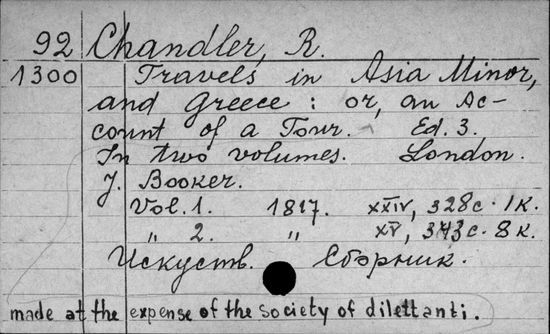 92 Chandler, R.
1300 Travels in Asia Minor,
and Greece : or, an Ac-
count of a Tour. Ed. 3.
In two volumes. London.
J. Booker.
Vol. 1. 1817. XXIV, 328 c. 1 к.
„ 2. „ XV, 343 c. 8 к.
Искуств. Сборник.
made at the expense of the society of dilettanti.